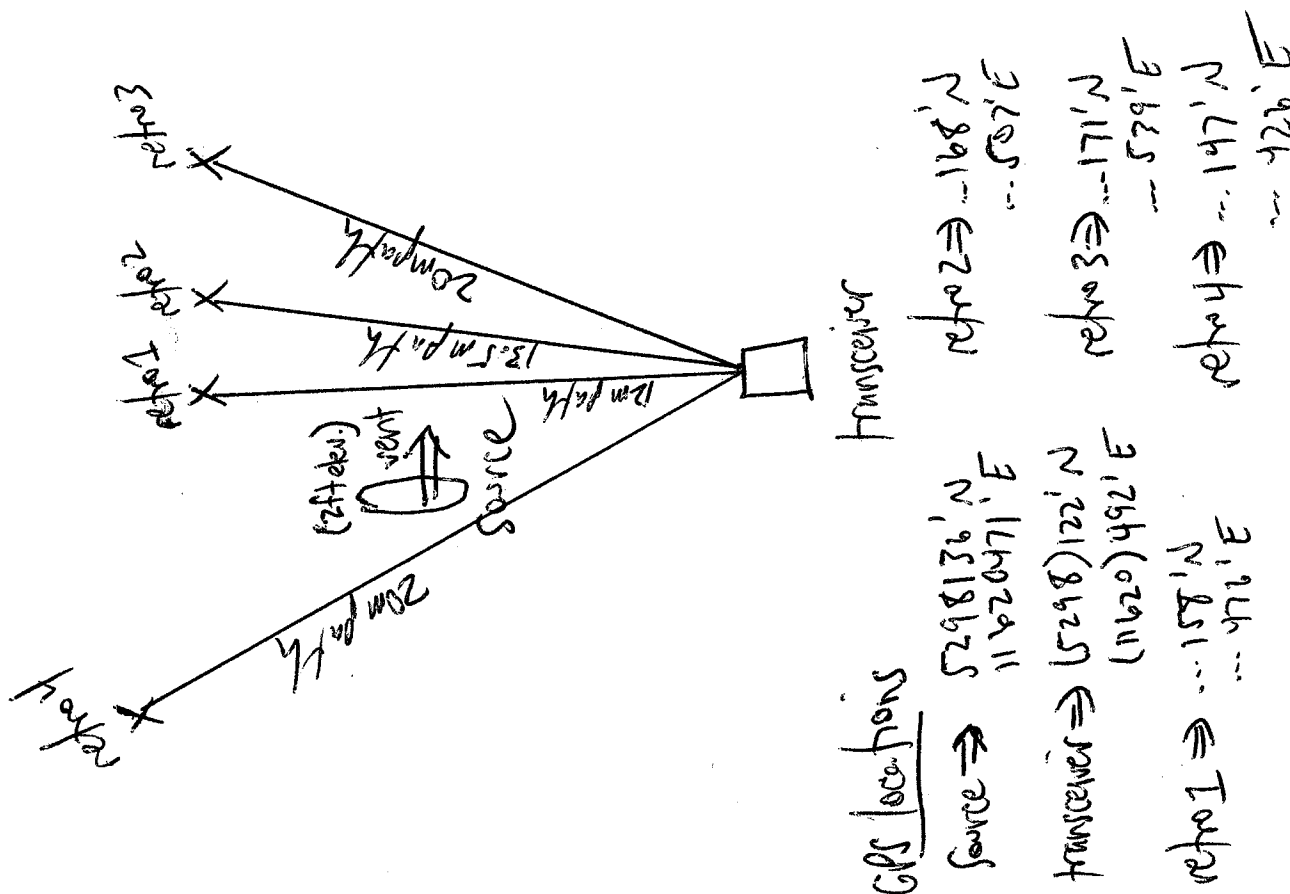 retro4
retro1
retro2
retro3
20m path
(2ft elev.)
vent
source
12m path
13.5m path
20m path
transceiver
GPS locations
source ⇒ 5298136' N
11620471' E
transceiver ⇒ (5298)122' N
(11620)492' E
retro1 ⇒ ...158' N
...476' E
retro2 ⇒ ...168' N
...507' E
retro3 ⇒ ...171' N
...539' E
retro4 ⇒ ...147' N
...426' E